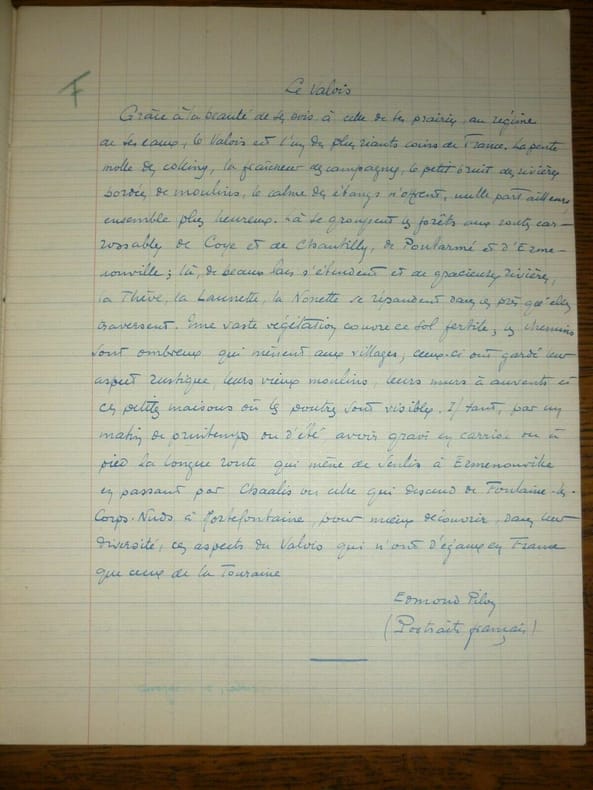 F
Le Valois
Grâce à la beauté de ses bois à celle de ses prairies, au régime
de ses eaux, le Valois est l'un des plus riants coins de France. La pente
molle des collines, la fraîcheur des campagnes, le petit bruit des rivières
bordées de moulins, le calme des étangs n'offrent, nulle part ailleurs,
ensemble plus heureux. Là se groupent les forêts aux routes car-
rossables de Coye et de Chantilly, de Pontarmé et d'Erme-
nonville ; là, de beaux lacs s'étendent et de gracieuses rivières,
la Thève, la Launette, la Nonette se répandent dans les prés qu'elles
traversent. Une vaste végétation couvre ce sol fertile ; les chemins
sont ombreux qui mènent aux villages ; ceux-ci ont gardé leur
aspect rustique, leurs vieux moulins, leurs murs à auvents et
ces petites maisons où les poutres sont visibles. Il faut, par un
matin de printemps ou d'été, avoir gravi en carriole ou à
pied la longue route qui mène de Senlis à Ermenonville
en passant par Chaalis ou celle qui descend de Fontaine-les-
Corps-Nuds à Mortefontaine, pour mieux découvrir, dans leur
diversité, ces aspects du Valois qui n'ont d'égaux en France
que ceux de la Touraine
Edmond Pilon
(Portraits français)